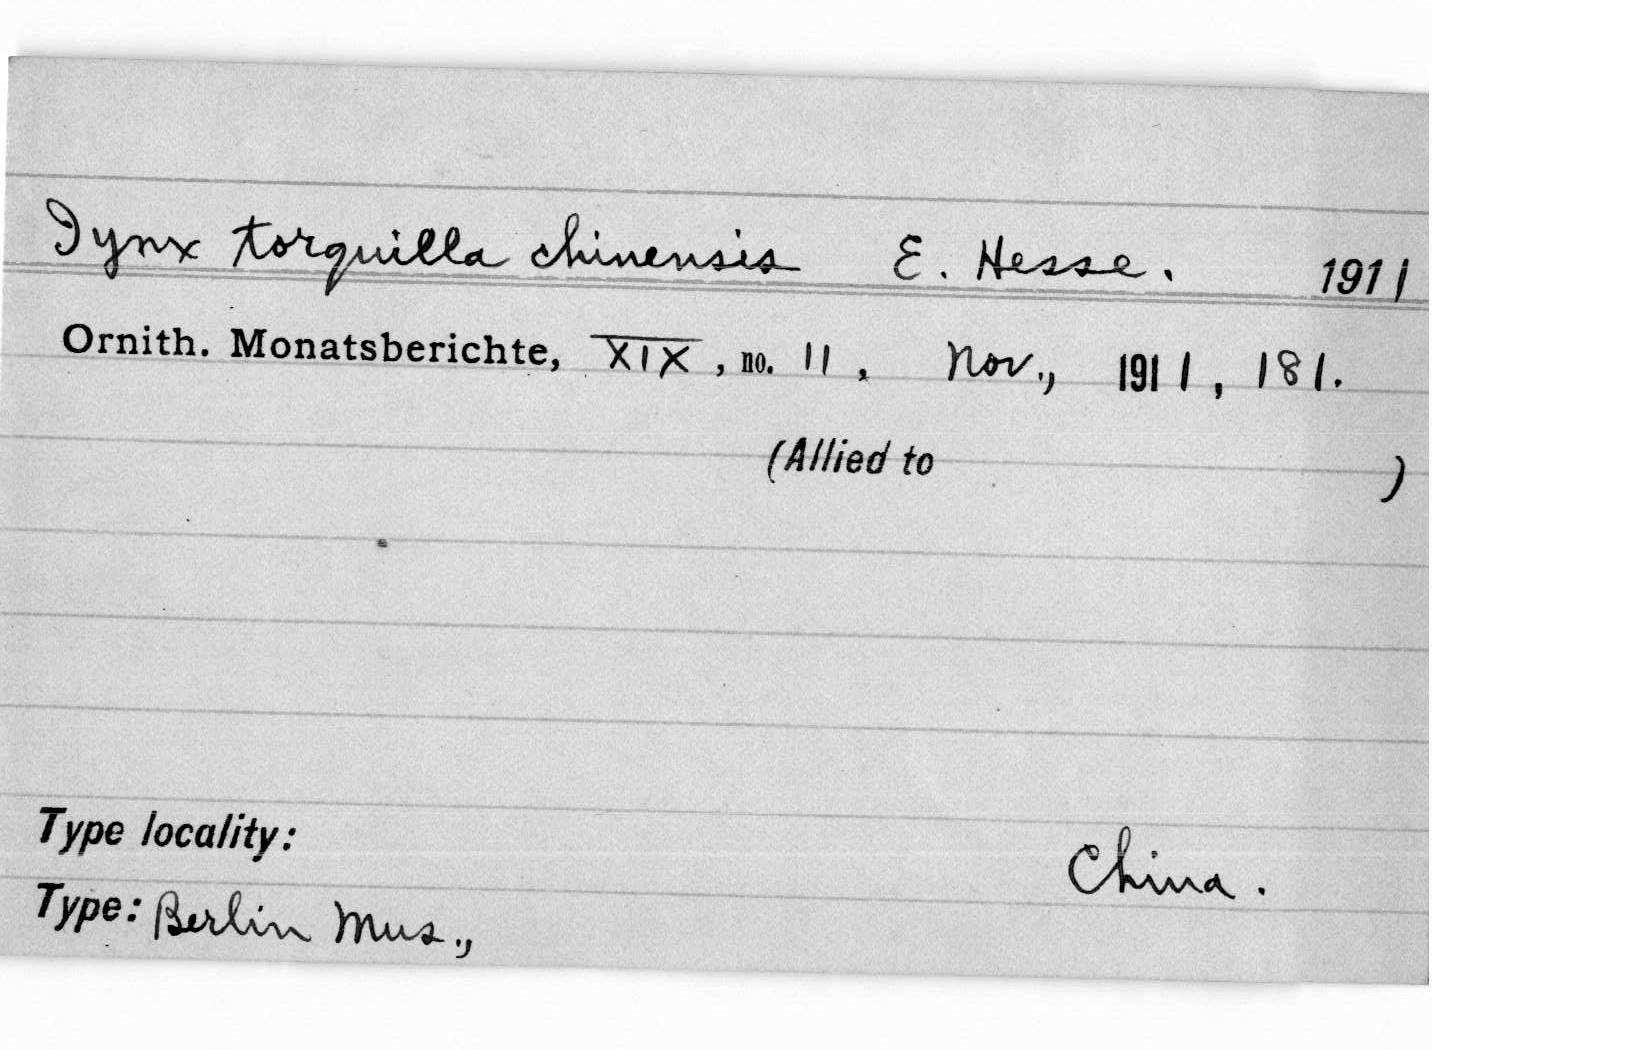 Iynx torquilla chinensis E. Hesse. 1911
Ornith. Monatsberichte, XIX, no. 11, Nov., 1911, 181.
(Allied to )
Type locality: China.
Type: Berlin Mus.,